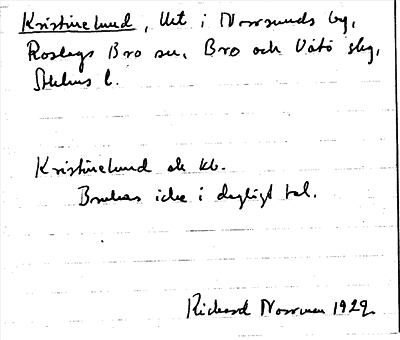 Kristinelund, lht i Norrsunds by,
Roslags Bro sn, Bro och Vätö skg,
Sthlms l.
Kristinelund ek kb.
Brukas icke i dagligt tal.
Richard Norrman 1929.